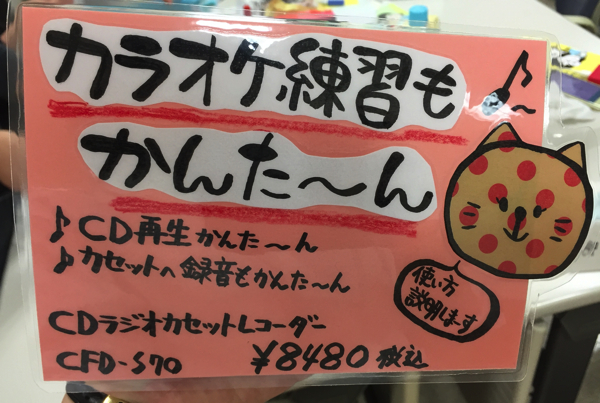 カラオケ練習も
かんた〜ん
♪CD再生かんた〜ん
♪カセットへ録音もかんた〜ん
使い方
説明します
CDラジオカセットレコーダー
CFD-S70 ¥8480税込